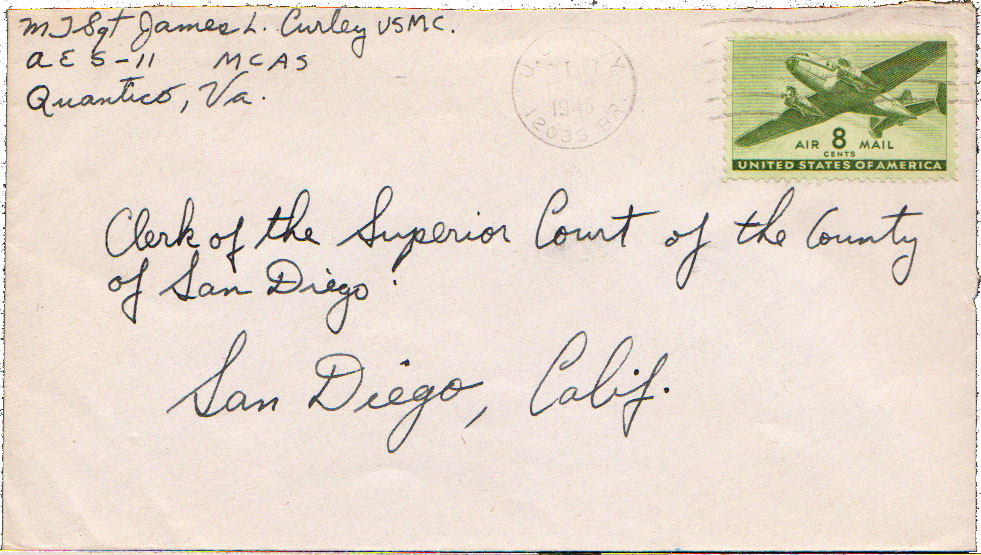 MTSgt James L. Curley USMC.
AES-11 MCAS
Quantico, Va.
U.
Y
194
12033 BR.
AIR 8 MAIL
CENTS
UNITED STATES OF AMERICA
Clerk of the Superior Court of the County
of San Diego.
San Diego, Calif.